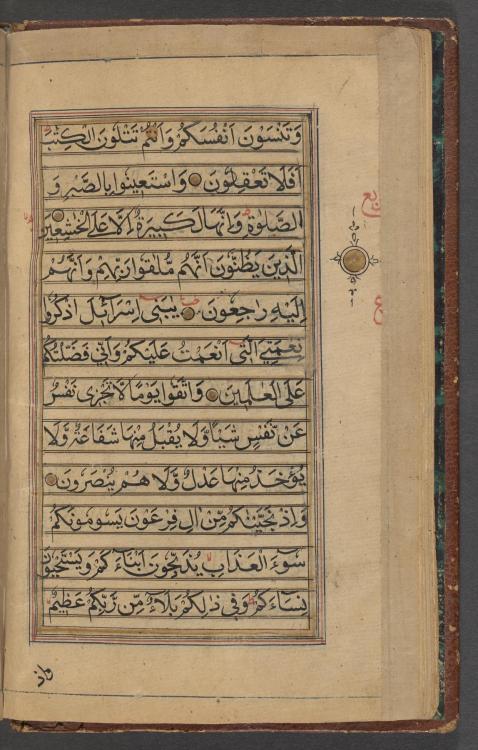 وَتَنْسَوْنَ اَنْفُسَكُمْ وَاَنْتُمْ تَتْلُوْنَ الْكِتٰبَ
اَفَلَا تَعْقِلُوْنَ وَاسْتَعِيْنُوْا بِالصَّبْرِ وَ
الصَّلٰوةِ وَاِنَّهَا لَكَبِيْرَةٌ اِلَّا عَلَى الْخٰشِعِيْنَ
الَّذِيْنَ يَظُنُّوْنَ اَنَّهُمْ مُّلٰقُوْا رَبِّهِمْ وَاَنَّهُمْ
اِلَيْهِ رَاجِعُوْنَ يٰبَنِيْ اِسْرَآئِلَ اذْكُرُوْا
نِعْمَتِيَ الَّتِيْ اَنْعَمْتُ عَلَيْكُمْ وَاَنِّيْ فَضَّلْتُكُمْ
عَلَى الْعٰلَمِيْنَ وَاتَّقُوْا يَوْمًا لَّا تَجْزِيْ نَفْسٌ
عَنْ نَّفْسٍ شَيْئًا وَّلَا يُقْبَلُ مِنْهَا شَفَاعَةٌ وَّلَا
يُؤْخَذُ مِنْهَا عَدْلٌ وَّلَا هُمْ يُنْصَرُوْنَ
وَاِذْ نَجَّيْنٰكُمْ مِّنْ اٰلِ فِرْعَوْنَ يَسُوْمُوْنَكُمْ
سُوْٓءَ الْعَذَابِ يُذَبِّحُوْنَ اَبْنَآءَكُمْ وَيَسْتَحْيُوْنَ
نِسَآءَكُمْ وَفِيْ ذٰلِكُمْ بَلَآءٌ مِّنْ رَّبِّكُمْ عَظِيْمٌ
واذ